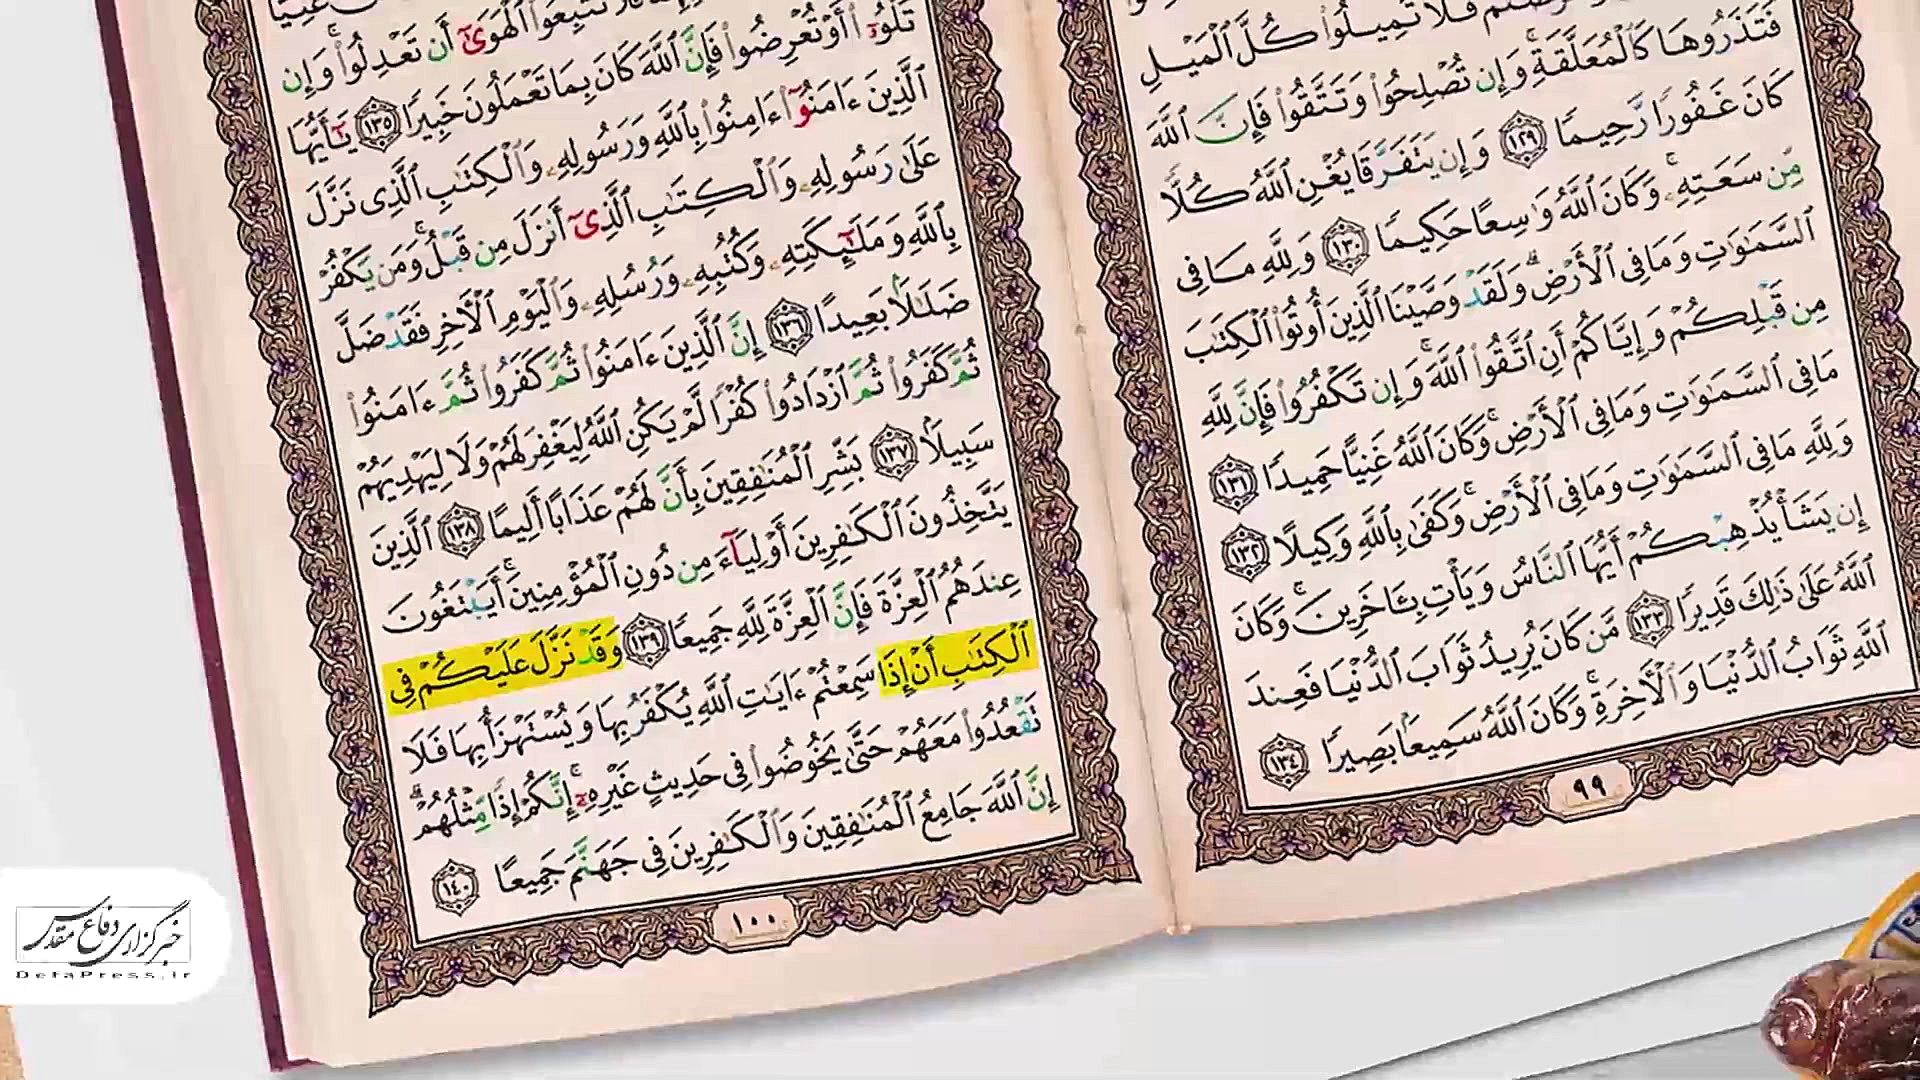 فَلَا تَمِيلُوا۟ كُلَّ ٱلْمَيْلِ
فَتَذَرُوهَا كَٱلْمُعَلَّقَةِ ۚ وَإِن تُصْلِحُوا۟ وَتَتَّقُوا۟ فَإِنَّ ٱللَّهَ
كَانَ غَفُورًا رَّحِيمًا ١٢٩ وَإِن يَتَفَرَّقَا يُغْنِ ٱللَّهُ كُلًّا
مِّن سَعَتِهِۦ ۚ وَكَانَ ٱللَّهُ وَٰسِعًا حَكِيمًا ١٣٠ وَلِلَّهِ مَا فِى
ٱلسَّمَٰوَٰتِ وَمَا فِى ٱلْأَرْضِ ۗ وَلَقَدْ وَصَّيْنَا ٱلَّذِينَ أُوتُوا۟ ٱلْكِتَٰبَ
مِن قَبْلِكُمْ وَإِيَّاكُمْ أَنِ ٱتَّقُوا۟ ٱللَّهَ ۚ وَإِن تَكْفُرُوا۟ فَإِنَّ لِلَّهِ
مَا فِى ٱلسَّمَٰوَٰتِ وَمَا فِى ٱلْأَرْضِ ۚ وَكَانَ ٱللَّهُ غَنِيًّا حَمِيدًا ١٣١
وَلِلَّهِ مَا فِى ٱلسَّمَٰوَٰتِ وَمَا فِى ٱلْأَرْضِ ۚ وَكَفَىٰ بِٱللَّهِ وَكِيلًا ١٣٢
إِن يَشَأْ يُذْهِبْكُمْ أَيُّهَا ٱلنَّاسُ وَيَأْتِ بِـَٔاخَرِينَ ۚ وَكَانَ
ٱللَّهُ عَلَىٰ ذَٰلِكَ قَدِيرًا ١٣٣ مَّن كَانَ يُرِيدُ ثَوَابَ ٱلدُّنْيَا فَعِندَ
ٱللَّهِ ثَوَابُ ٱلدُّنْيَا وَٱلْأَخِرَةِ ۚ وَكَانَ ٱللَّهُ سَمِيعًۢا بَصِيرًا ١٣٤
٩٩
تَتَّبِعُوا۟ ٱلْهَوَىٰٓ أَن تَعْدِلُوا۟ ۚ وَإِن
تَلْوُۥٓا۟ أَوْ تُعْرِضُوا۟ فَإِنَّ ٱللَّهَ كَانَ بِمَا تَعْمَلُونَ خَبِيرًا ١٣٥ يَٰٓأَيُّهَا
ٱلَّذِينَ ءَامَنُوٓا۟ ءَامِنُوا۟ بِٱللَّهِ وَرَسُولِهِۦ وَٱلْكِتَٰبِ ٱلَّذِى نَزَّلَ
عَلَىٰ رَسُولِهِۦ وَٱلْكِتَٰبِ ٱلَّذِىٓ أَنزَلَ مِن قَبْلُ ۚ وَمَن يَكْفُرْ
بِٱللَّهِ وَمَلَٰٓئِكَتِهِۦ وَكُتُبِهِۦ وَرُسُلِهِۦ وَٱلْيَوْمِ ٱلْأَخِرِ فَقَدْ ضَلَّ
ضَلَٰلًۢا بَعِيدًا ١٣٦ إِنَّ ٱلَّذِينَ ءَامَنُوا۟ ثُمَّ كَفَرُوا۟ ثُمَّ ءَامَنُوا۟
ثُمَّ كَفَرُوا۟ ثُمَّ ٱزْدَادُوا۟ كُفْرًا لَّمْ يَكُنِ ٱللَّهُ لِيَغْفِرَ لَهُمْ وَلَا لِيَهْدِيَهُمْ
سَبِيلًۢا ١٣٧ بَشِّرِ ٱلْمُنَٰفِقِينَ بِأَنَّ لَهُمْ عَذَابًا أَلِيمًا ١٣٨ ٱلَّذِينَ
يَتَّخِذُونَ ٱلْكَٰفِرِينَ أَوْلِيَآءَ مِن دُونِ ٱلْمُؤْمِنِينَ ۚ أَيَبْتَغُونَ
عِندَهُمُ ٱلْعِزَّةَ فَإِنَّ ٱلْعِزَّةَ لِلَّهِ جَمِيعًا ١٣٩ وَقَدْ نَزَّلَ عَلَيْكُمْ فِى
ٱلْكِتَٰبِ أَنْ إِذَا سَمِعْتُمْ ءَايَٰتِ ٱللَّهِ يُكْفَرُ بِهَا وَيُسْتَهْزَأُ بِهَا فَلَا
تَقْعُدُوا۟ مَعَهُمْ حَتَّىٰ يَخُوضُوا۟ فِى حَدِيثٍ غَيْرِهِۦٓ ۚ إِنَّكُمْ إِذًا مِّثْلُهُمْ ۗ
إِنَّ ٱللَّهَ جَامِعُ ٱلْمُنَٰفِقِينَ وَٱلْكَٰفِرِينَ فِى جَهَنَّمَ جَمِيعًا ١٤٠
١٠٠
خبرگزاری دفاع مقدس
DefaPress.ir